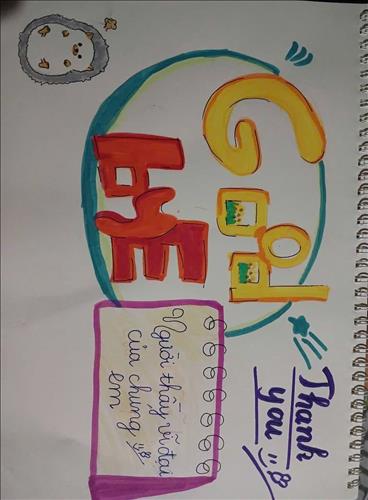 Good
bye
Thank
you
Người thầy vĩ đại
của chúng
em